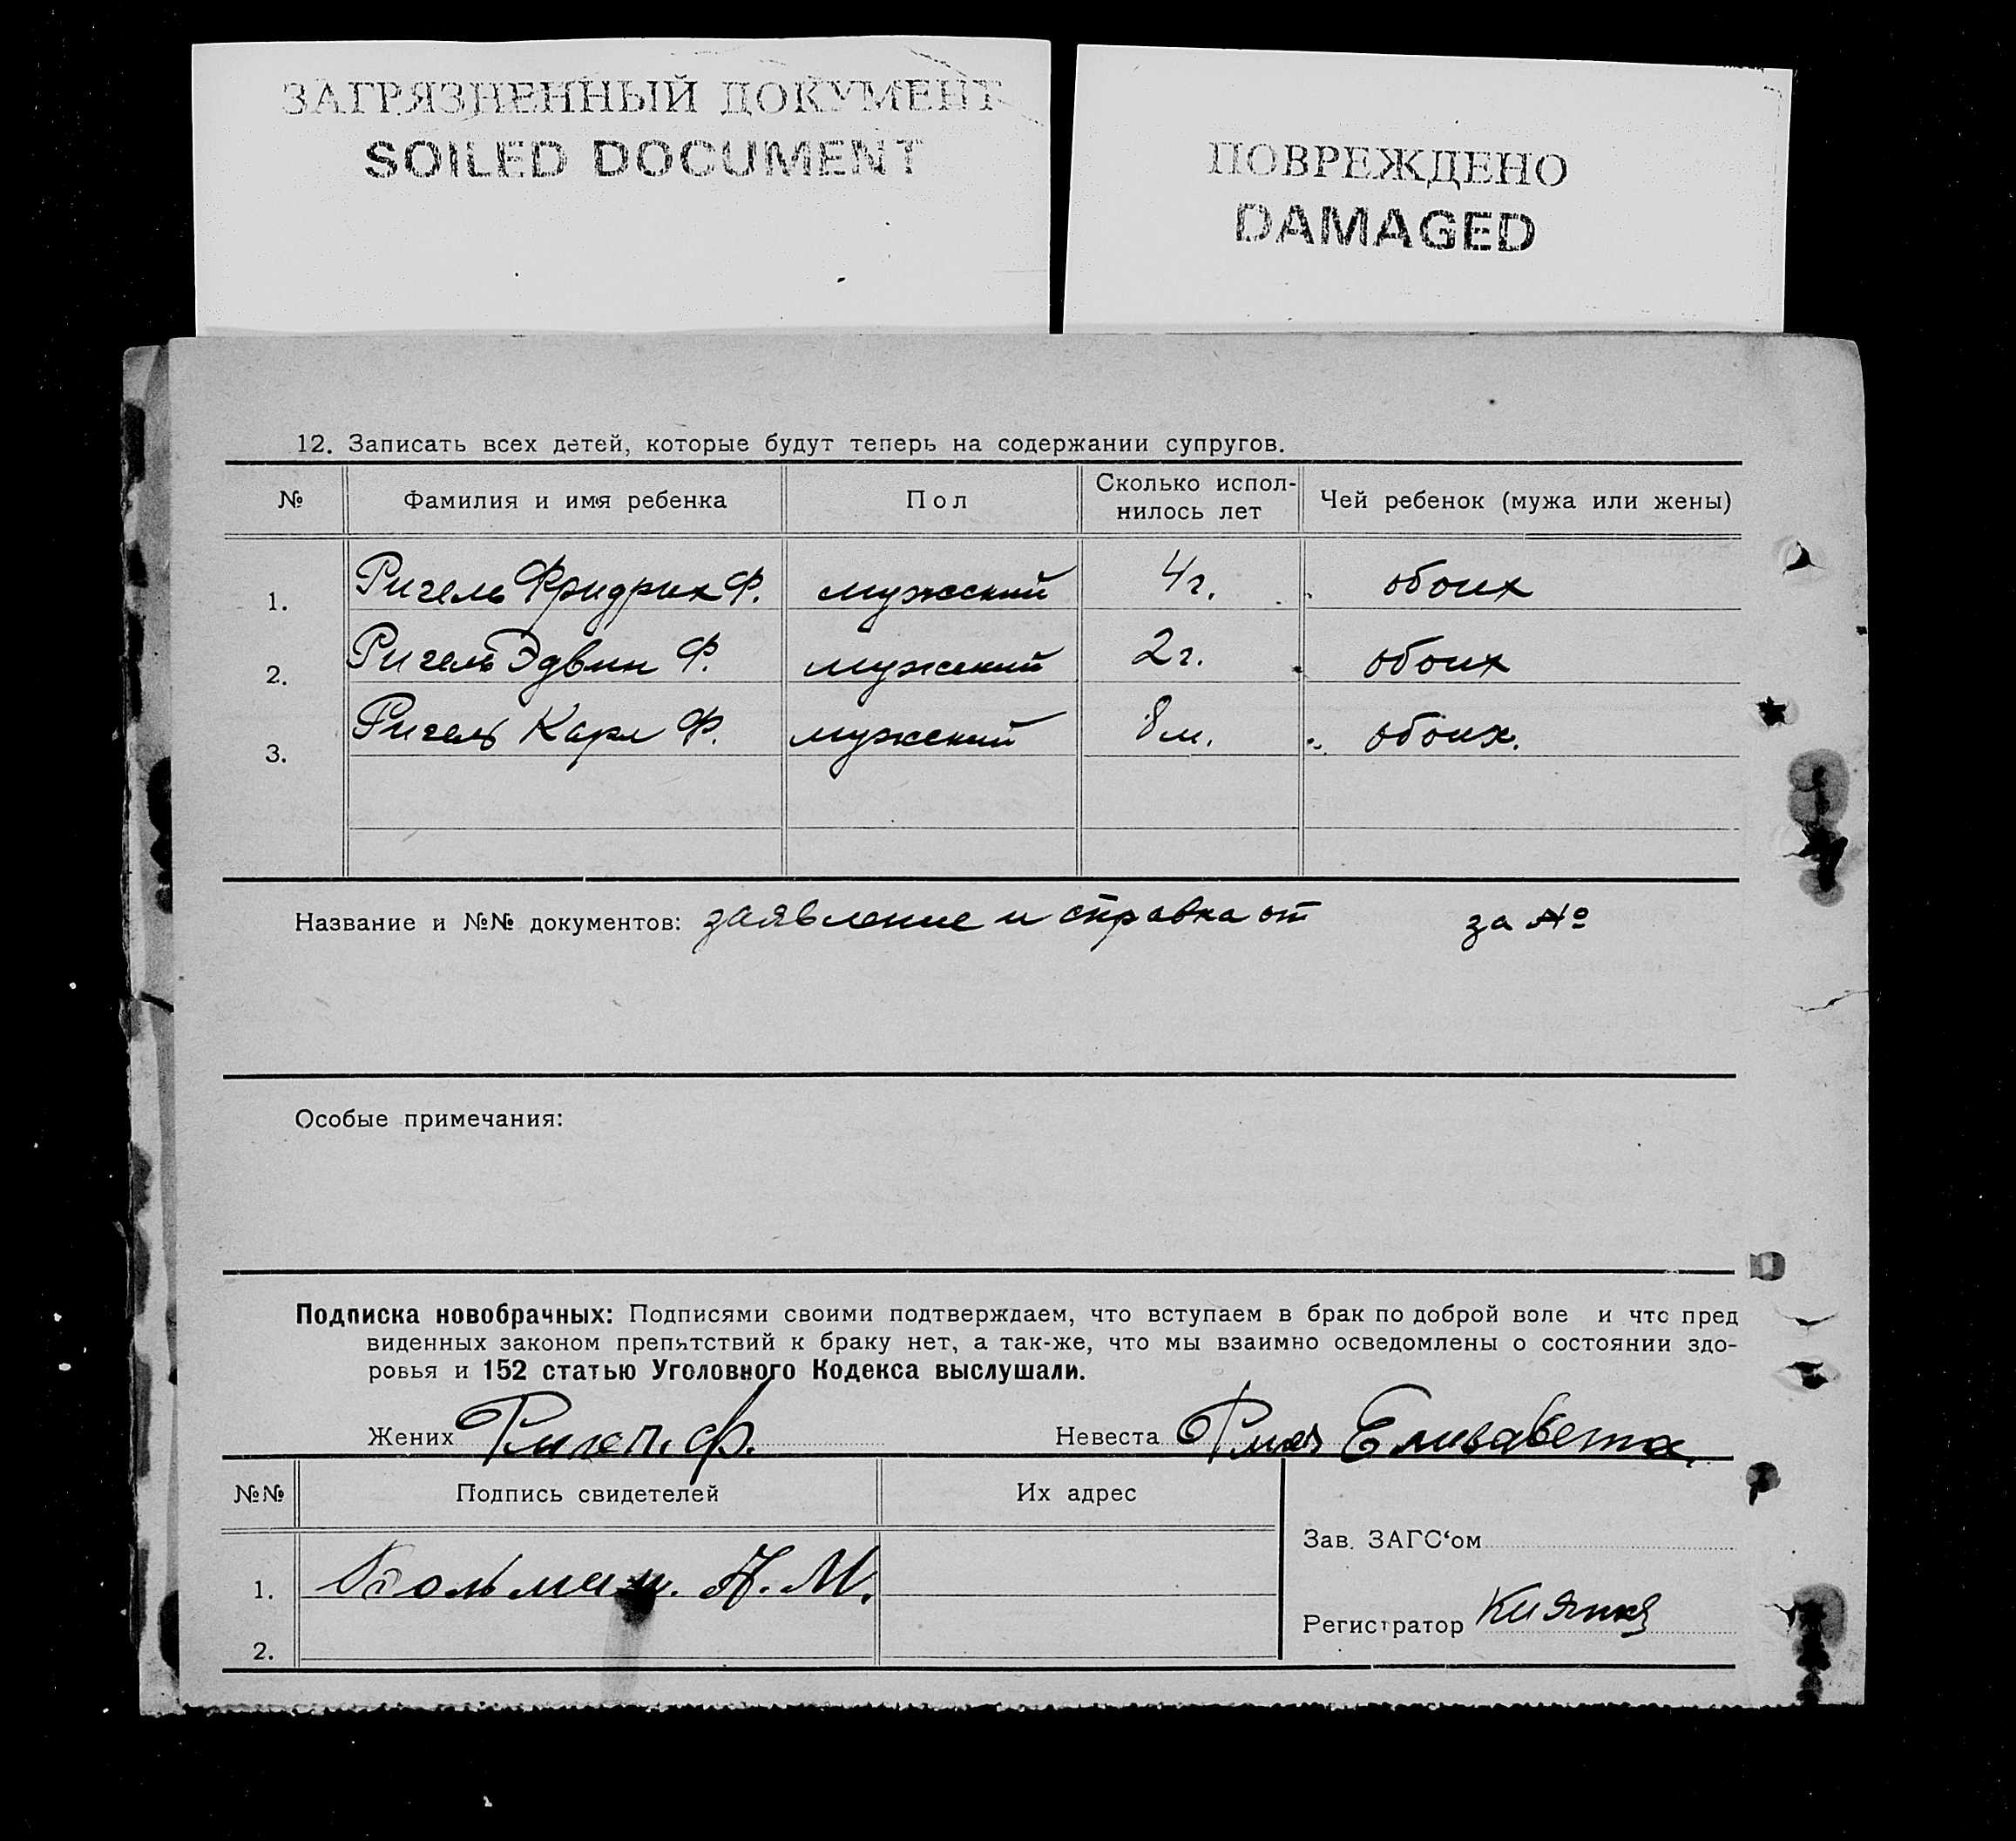 ЗАГРЯЗНЕННЫЙ ДОКУМЕНТ
SOILED DOCUMENT
ПОВРЕЖДЕНО
DAMAGED
12. Записать всех детей, которые будут теперь на содержании супругов.
№ Фамилия и имя ребенка Пол Сколько испол-нилось лет Чей ребенок (мужа или жены)
1. Ригель Фридрих Ф. мужский 4 г. обоих
2. Ригель Эдвин Ф. мужский 2 г. обоих
3. Ригель Карл Ф. мужский 8 м. обоих.
Название и №№ документов: заявление и справка от за №
Особые примечания:
Подписка новобрачных: Подписями своими подтверждаем, что вступаем в брак по доброй воле и что пред
виденных законом препятствий к браку нет, а так-же, что мы взаимно осведомлены о состоянии здо-
ровья и 152 статью Уголовного Кодекса выслушали.
Жених Ф. Невеста Елизавета.
№№ Подпись свидетелей Их адрес
Зав. ЗАГС'ом
1. А. М.
Регистратор
2.